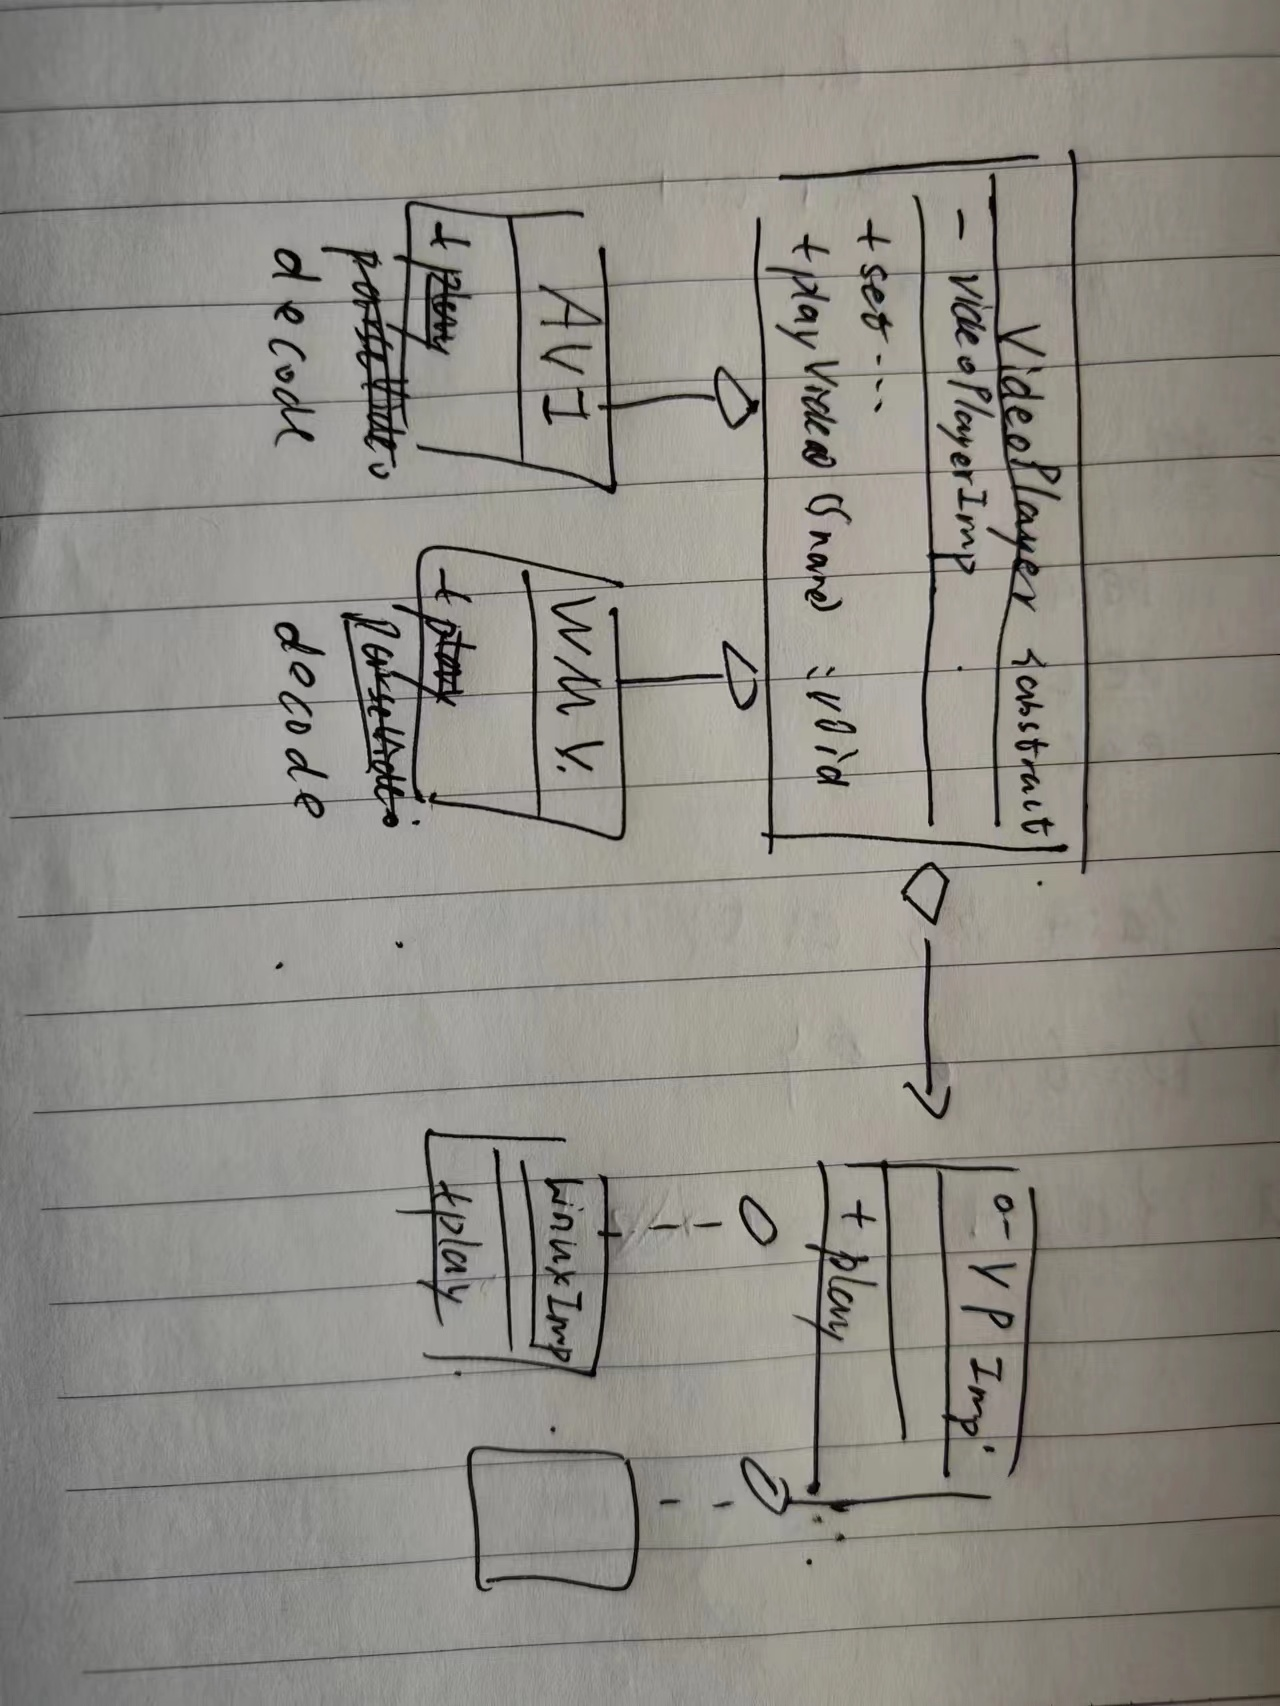 VideoPlayer {abstract}
- VideoPlayerImp
+ set ...
+ playVideo (Sname) : void
AVI
+ play
decode
WMV.
+ play
decode
o- VP Imp
+ play
LinuxImp
+ play